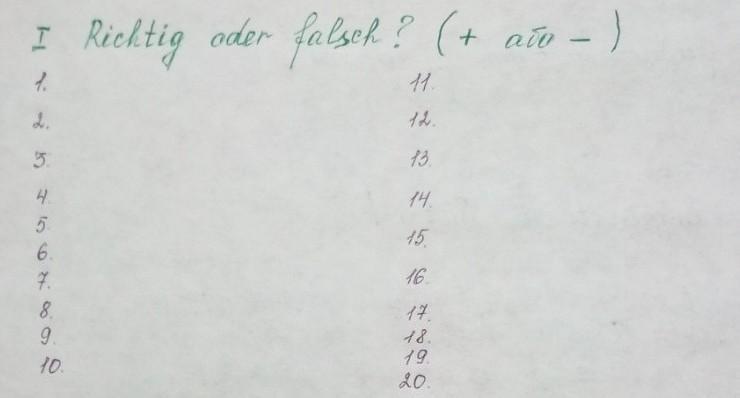 I Richtig oder falsch? (+ або -)
1.
2.
3.
4.
5.
6.
7.
8.
9.
10.
11.
12.
13.
14.
15.
16.
17.
18.
19.
20.